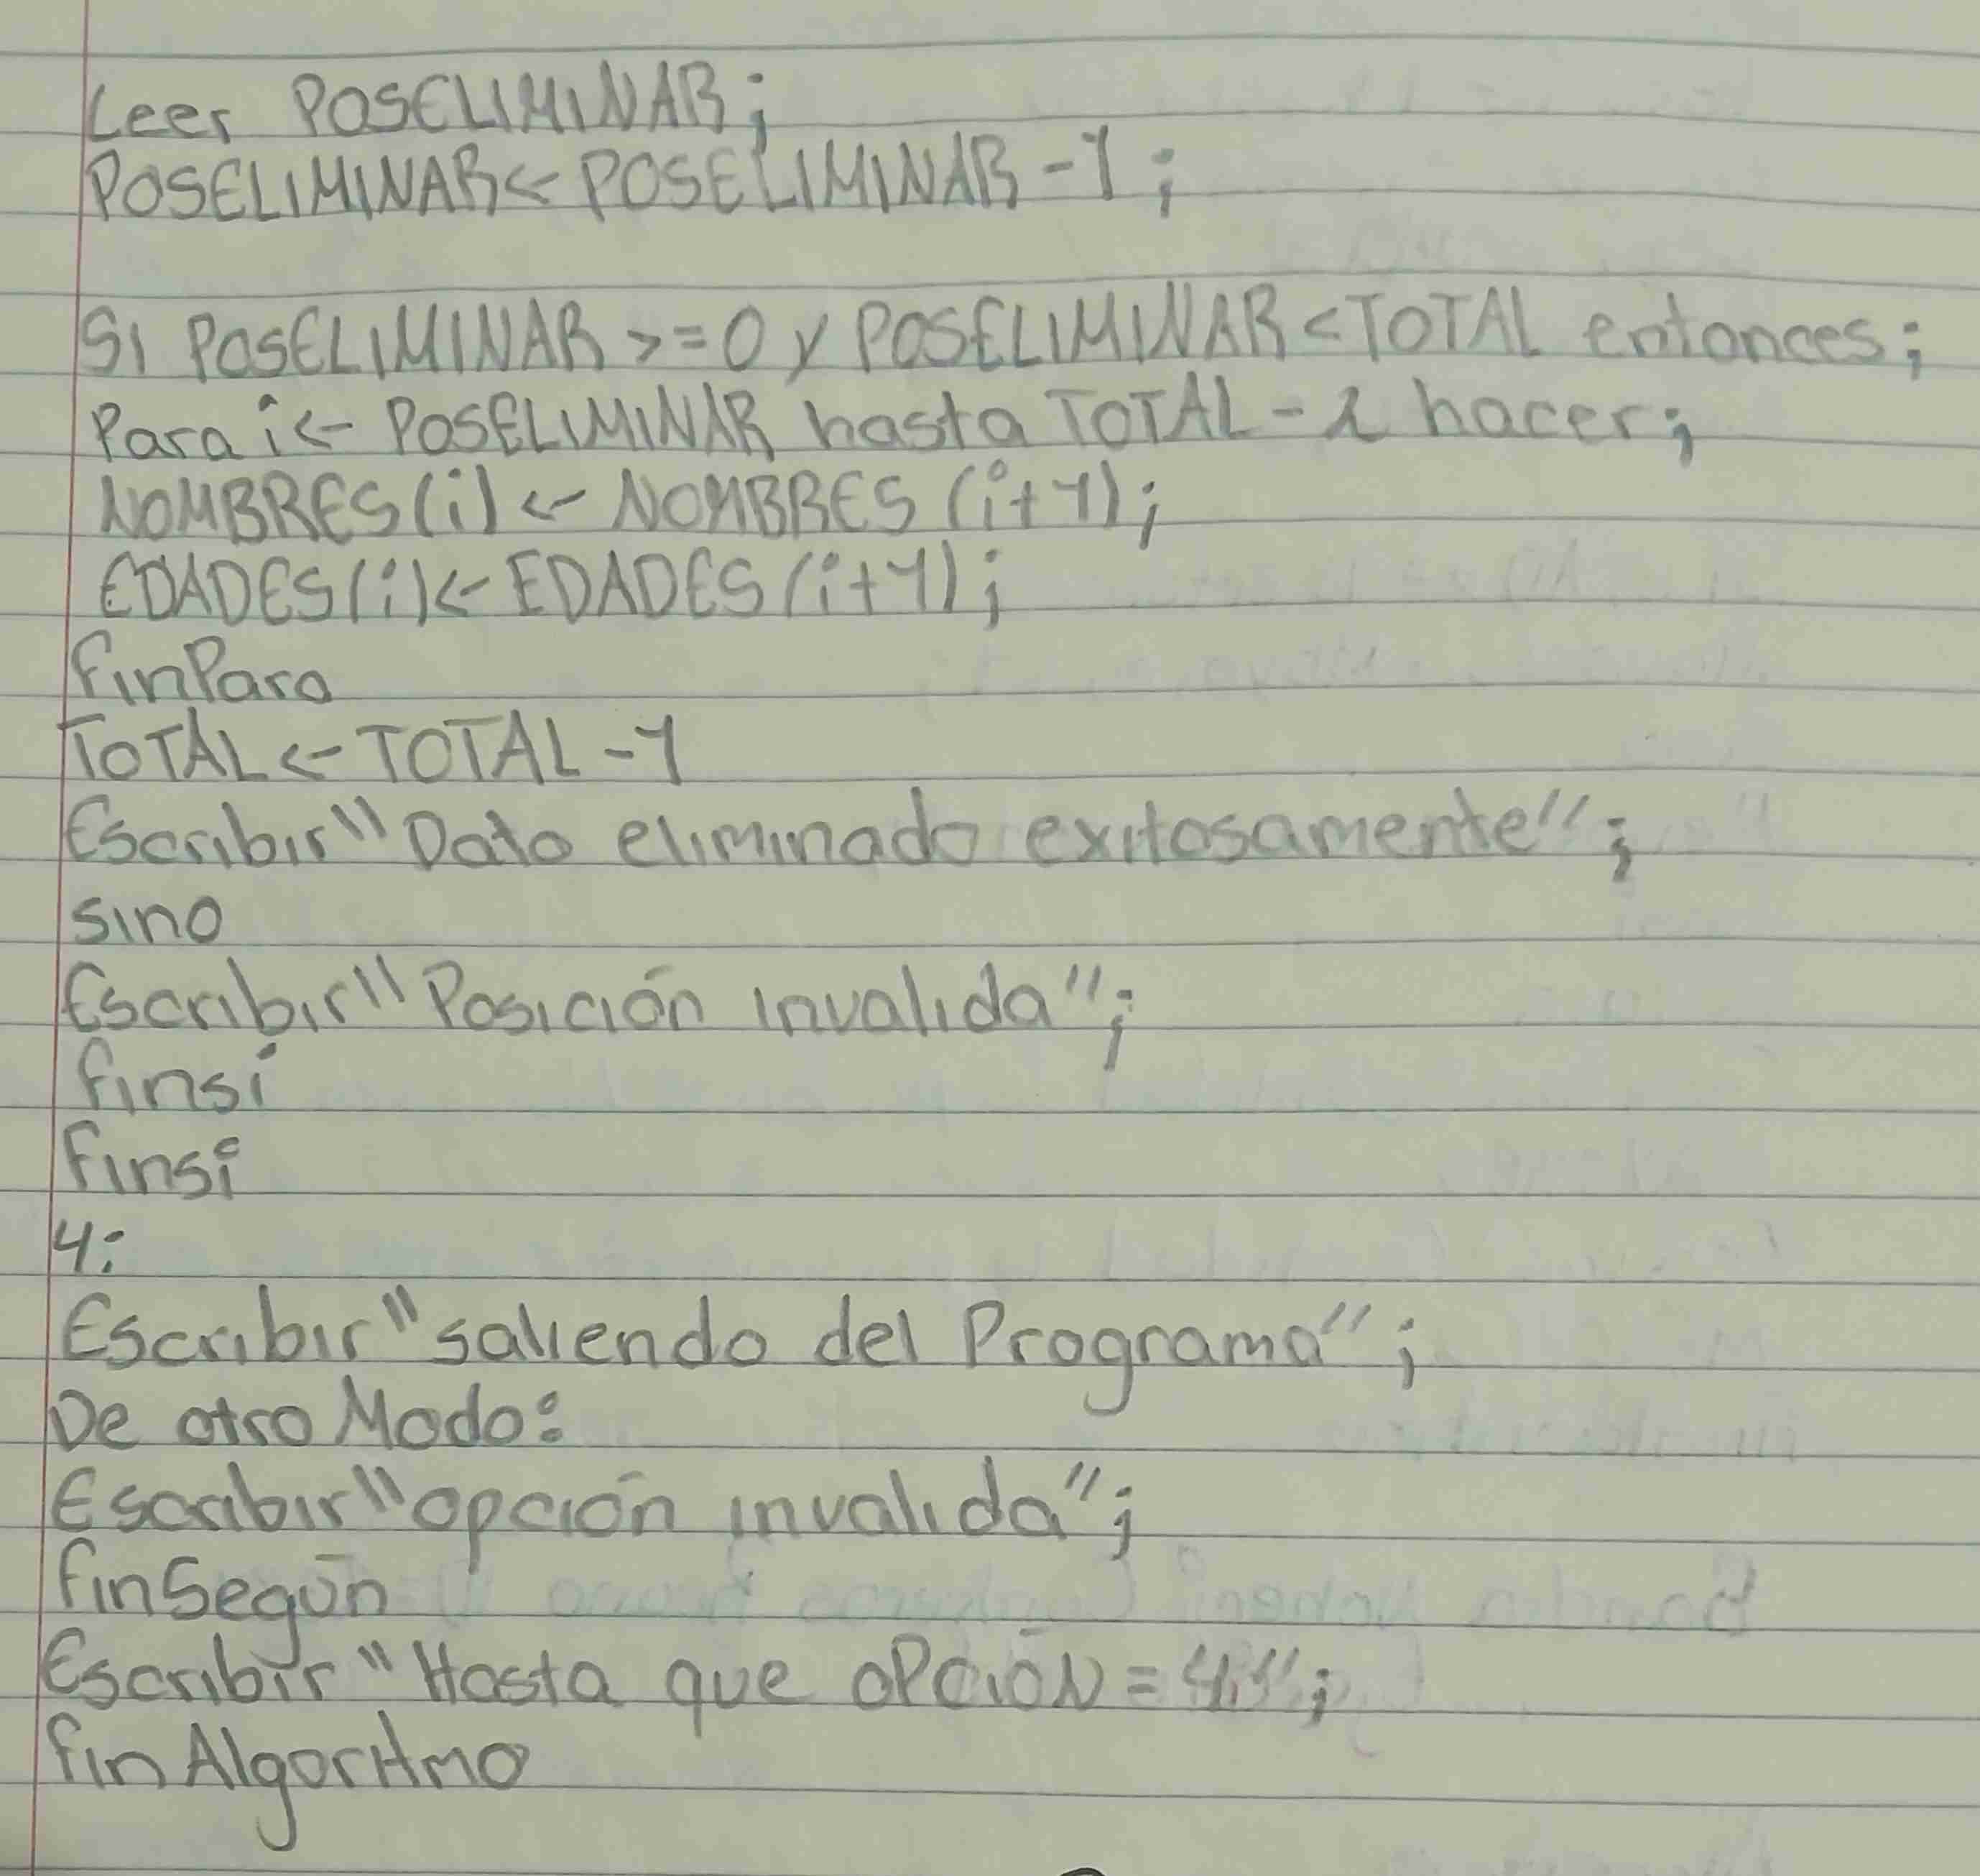 Leer POSELIMINAR;
POSELIMINAR<-POSELIMINAR -1;
Si POSELIMINAR >=0 y POSELIMINAR<TOTAL entonces;
Para i<- POSELIMINAR hasta TOTAL-2 hacer;
NOMBRES(i)<-NOMBRES(i+1);
EDADES(i)<-EDADES(i+1);
finPara
TOTAL<-TOTAL-1
Escribir"Dato eliminado exitosamente";
sino
Escribir"Posición invalida";
finsi
finsi
4:
Escribir"saliendo del Programa";
De otro Modo:
Escribir"opción invalida";
finSegún
Escribir"Hasta que OPCIÓN=4";
finAlgoritmo